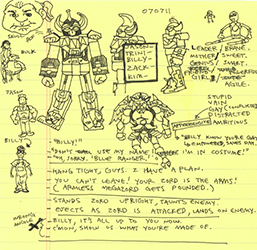 070711
SKULL
BULK
JASON
TRINI-
BILLY-
ZACK-
KIM-
LEADER/BRAVE.
MOTHER/SWEET.
GENIUS/SMART.
GIRL/
AGILE.
STUPID
VAIN
GAY
DISTRACTED
AMBITIOUS
JASON
BILLY
"BILLY!"
"DON'T USE MY NAME WHERE I'M IN COSTUME!"
"OH, SORRY, BLUE RANGER."
HANG TIGHT, GUYS. I HAVE A PLAN.
YOU CAN'T LEAVE! YOUR ZORD IS THE ARMS!
(ARMLESS MEGAZORD GETS POUNDED.)
STANDS ZORD UPRIGHT, TAUNTS ENEMY.
EJECTS AS ZORD IS ATTACKED, LANDS ON ENEMY.
BILLY, IT'S ALL UP TO YOU NOW.
C'MON, SHOW US WHAT YOU'RE MADE OF.